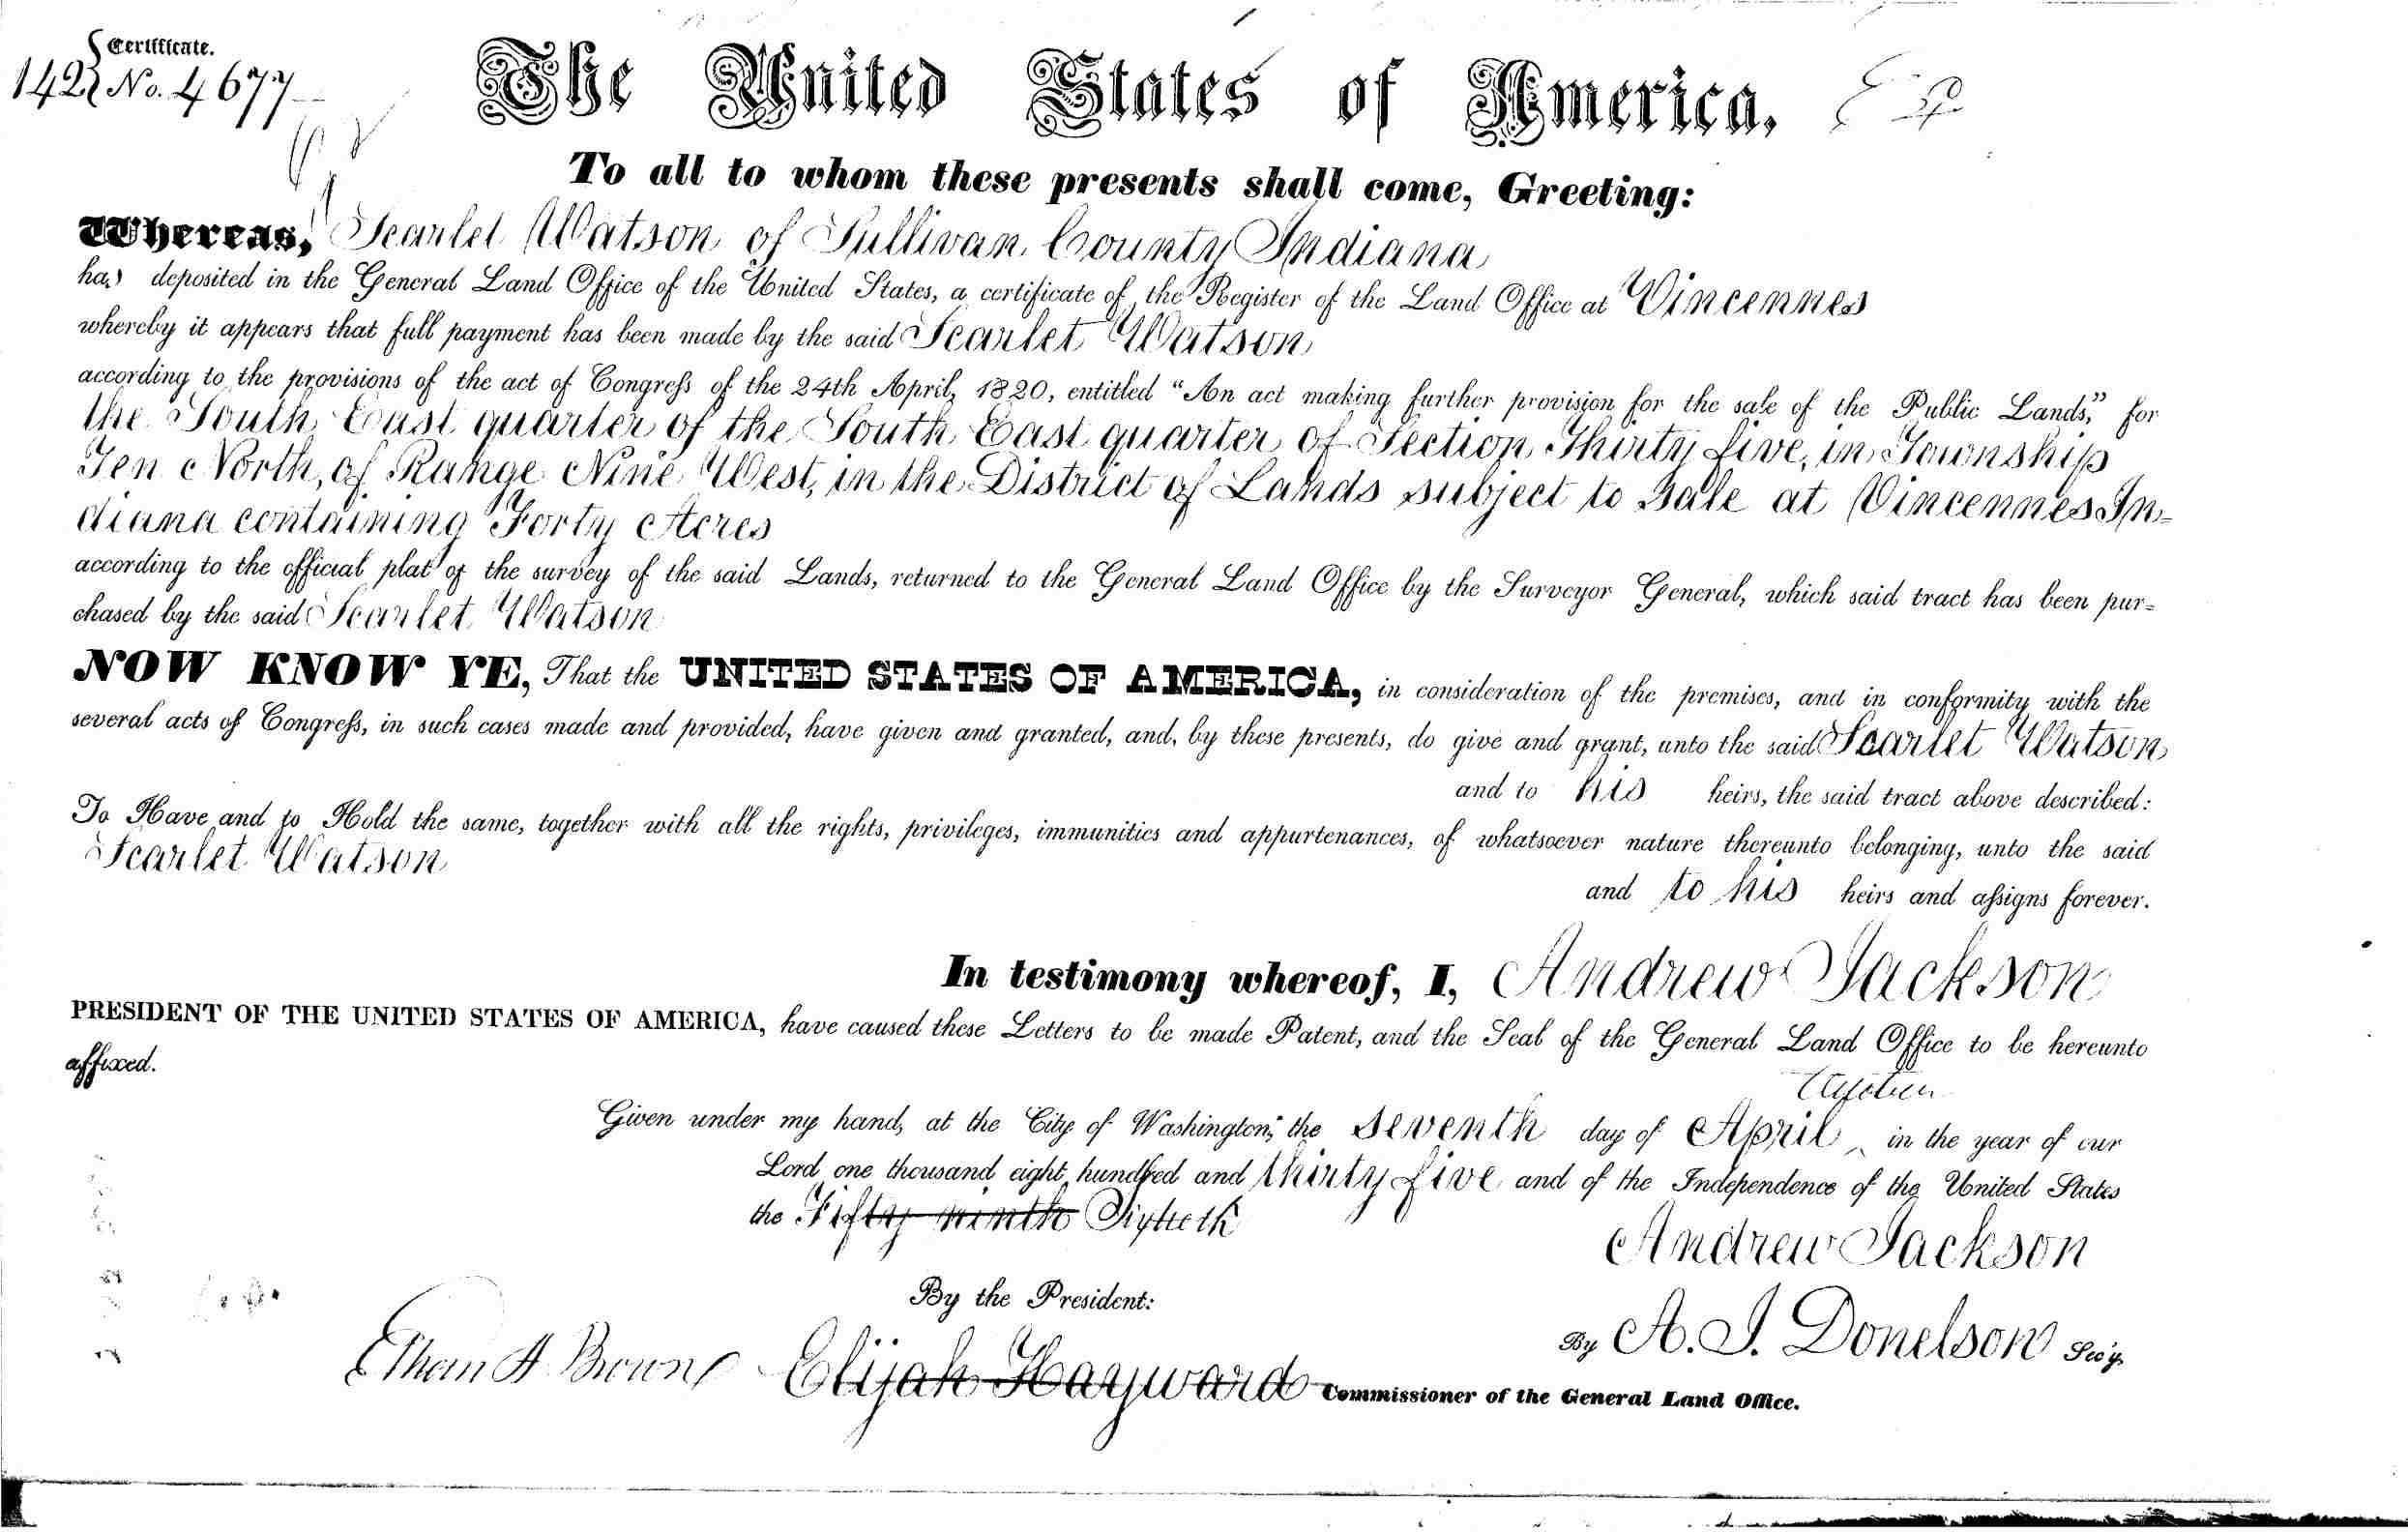 Certificate.
142 No. 4677
The United States of America,
To all to whom these presents shall come, Greeting:
Whereas, Scarlet Watson of Sullivan County Indiana
has deposited in the General Land Office of the United States, a certificate of the Register of the Land Office at Vincennes
whereby it appears that full payment has been made by the said Scarlet Watson
according to the provisions of the act of Congress of the 24th April, 1820, entitled “An act making further provision for the sale of the Public Lands,” for
the South East quarter of the South East quarter of Section Thirty five, in Township
Ten North, of Range Nine West, in the District of Lands subject to Sale at Vincennes In=
diana containing Forty Acres
according to the official plat of the survey of the said Lands, returned to the General Land Office by the Surveyor General, which said tract has been pur=
chased by the said Scarlet Watson
NOW KNOW YE, That the UNITED STATES OF AMERICA, in consideration of the premises, and in conformity with the
several acts of Congress, in such cases made and provided, have given and granted, and, by these presents, do give and grant, unto the said Scarlet Watson
and to his heirs, the said tract above described:
To Have and to Hold the same, together with all the rights, privileges, immunities and appurtenances, of whatsoever nature thereunto belonging, unto the said
Scarlet Watson
and to his heirs and assigns forever.
In testimony whereof, I, Andrew Jackson
PRESIDENT OF THE UNITED STATES OF AMERICA, have caused these Letters to be made Patent, and the Seal of the General Land Office to be hereunto
affixed.
Given under my hand, at the City of Washington, the seventh day of April in the year of our
Lord one thousand eight hundred and thirty five and of the Independence of the United States
the Fifty ninth Sixtieth
Andrew Jackson
By the President:
By A. J. Donelson Sec'y.
Ethan A Brown Elijah Hayward Commissioner of the General Land Office.